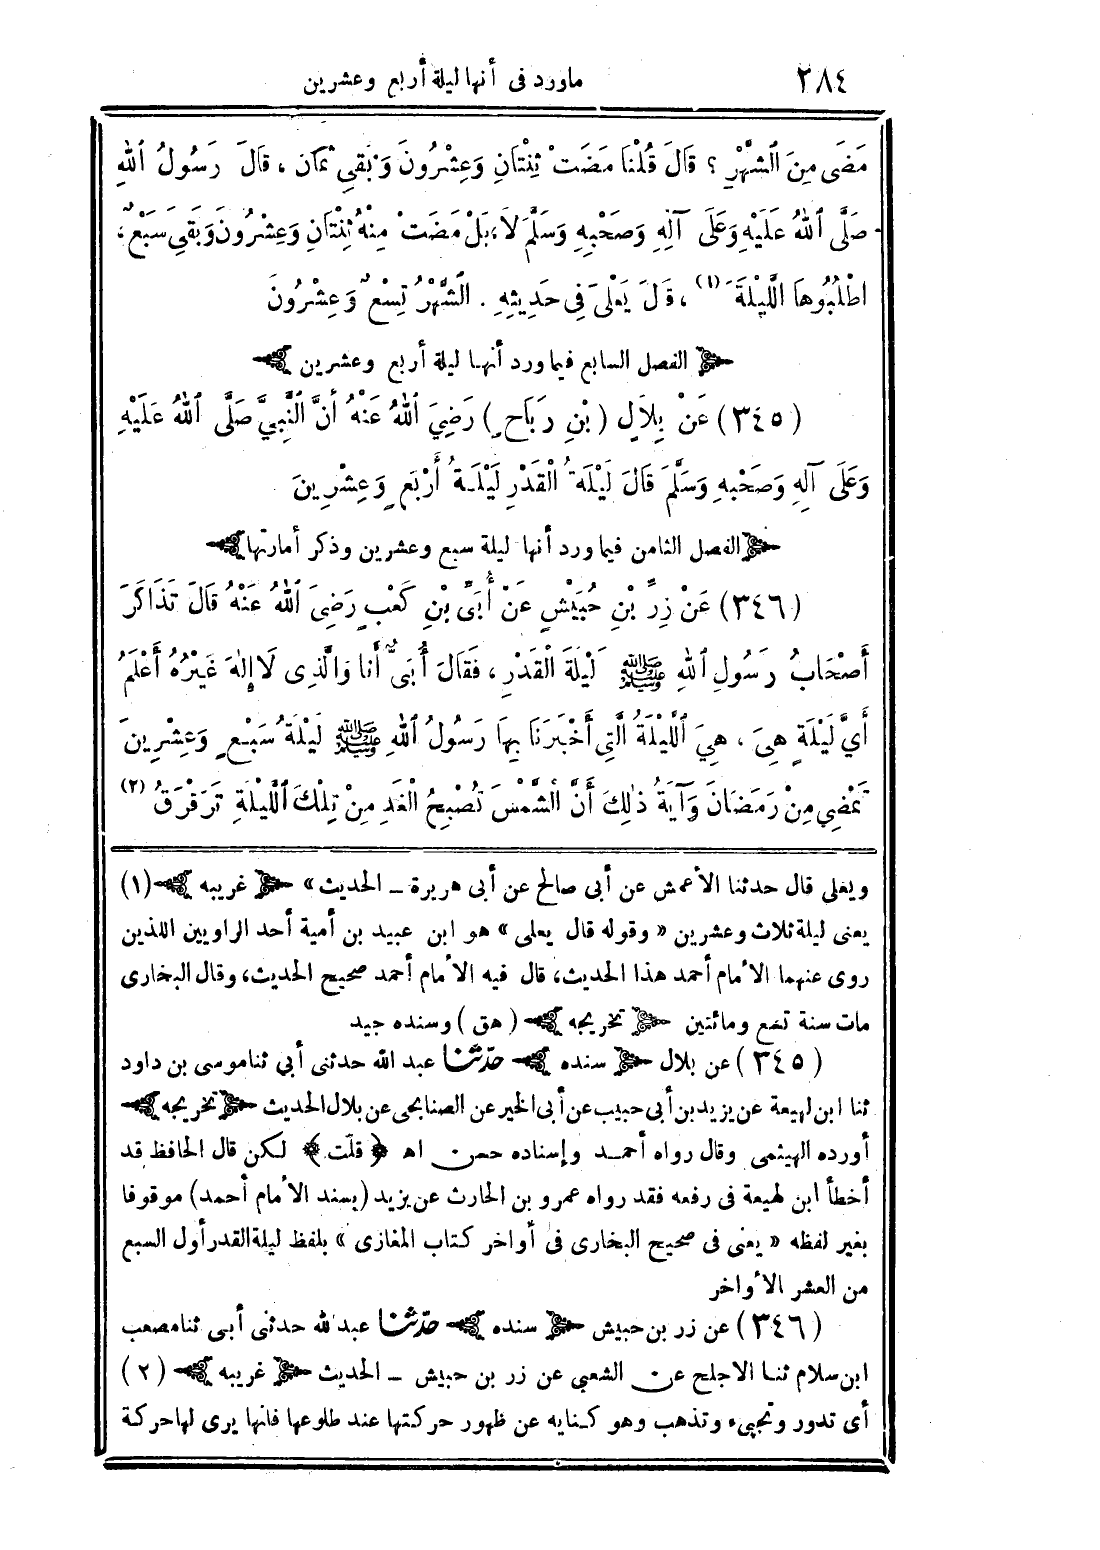 ٢٨٤ ماورد فى أنها ليلة أربع وعشرين
مَضَى مِنَ الشَّهْرِ ؟ قَالَ قُلْنَا مَضَتْ ثِنْتَانِ وَعِشْرُونَ وَبَقِىَ ثَمَانٍ ، قَالَ رَسُولُ اللهِ
صَلَّى اللهُ عَلَيْهِ وَعَلَى آلِهِ وَصَحْبِهِ وَسَلَّمَ لَا، بَلْ مَضَتْ مِنْهُ ثِنْتَانِ وَعِشْرُونَ وَبَقِىَ سَبْعٌ،
اطْلُبُوهَا اللَّيْلَةَ (١) ، قَالَ يَعْلَىَ فِى حَدِيثِهِ . الشَّهْرُ تِسْعٌ وَعِشْرُونَ
﴿ الفصل السابع فيما ورد أنهـا ليلة أربع وعشرين ﴾
(٣٤٥) عَنْ بِلَالٍ ( بْنِ رَبَاحٍ ) رَضِىَ اللهُ عَنْهُ أَنَّ النَّبِىَّ صَلَّى اللهُ عَلَيْهِ
وَعَلَى آلِهِ وَصَحْبِهِ وَسَلَّمَ قَالَ لَيْلَةُ الْقَدْرِ لَيْلَـةُ أَرْبَعٍ وَعِشْرِينَ
﴿ الفصل الثامن فيما ورد أنها ليلة سبع وعشرين وذكر أمارتها ﴾
(٣٤٦) عَنْ زِرِّ بْنِ حُبَيْشٍ عَنْ أُبَىِّ بْنِ كَعْبٍ رَضِىَ اللهُ عَنْهُ قَالَ تَذَاكَرَ
أَصْحَابُ رَسُولِ اللهِ ﷺ لَيْلَةَ الْقَدْرِ ، فَقَالَ أُبَىٌّ أَنَا وَالَّذِى لَا إِلٰهَ غَيْرُهُ أَعْلَمُ
أَىَّ لَيْلَةٍ هِىَ ، هِىَ اللَّيْلَةُ الَّتِى أَخْبَرَنَا بِهَا رَسُولُ اللهِ ﷺ لَيْلَةُ سَبْـعٍ وَعِشْرِينَ
تَمْضِى مِنْ رَمَضَانَ وَآيَةُ ذٰلِكَ أَنَّ الشَّمْسَ تُصْبِحُ الْغَدِ مِنْ تِلْكَ اللَّيْلَةِ تَرَقْرَقُ (٢)
ويعلى قال حدثنا الأعمش عن أبى صالح عن أبى هريرة ـ الحديث » ﴿ غريبه ﴾ (١)
يعنى ليلة ثلاث وعشرين « وقوله قال يعلى » هو ابن عبيد بن أمية أحد الراويين اللذين
روى عنهما الأمام أحمد هذا الحديث، قال فيه الأمام أحمد صحيح الحديث، وقال البخارى
مات سنة تسع ومائتين ﴿ تخريجه ﴾ ( هق ) وسنده جيد
(٣٤٥) عن بلال ﴿ سنده ﴾ حدّثنا عبد الله حدثنى أبي ثنا موسى بن داود
ثنا ابن لهيعة عن يزيد بن أبى حبيب عن أبى الخير عن الصنابحى عن بلال الحديث ﴿ تخريجه ﴾
أورده الهيثمى وقال رواه أحمـد وإسناده حسن اه ﴿ قلت ﴾ لكن قال الحافظ قد
أخطأ ابن لهيعة فى رفعه فقد رواه عمرو بن الحارث عن يزيد (بسند الأمام أحمد) موقوفا
بغير لفظه « يعنى فى صحيح البخارى فى أواخر كتاب المغازى » بلفظ ليلة القدر أول السبع
من العشر الأواخر
(٣٤٦) عن زر بن حبيش ﴿ سنده ﴾ حدّثنا عبد الله حدثنى أبى ثنا مصعب
ابن سلام ثنـا الاجلح عن الشعبي عن زر بن حبيش ـ الحديث ﴿ غريبه ﴾ (٢)
أى تدور وتجيء وتذهب وهو كناية عن ظهور حركتها عند طلوعها فانها يرى لها حركة